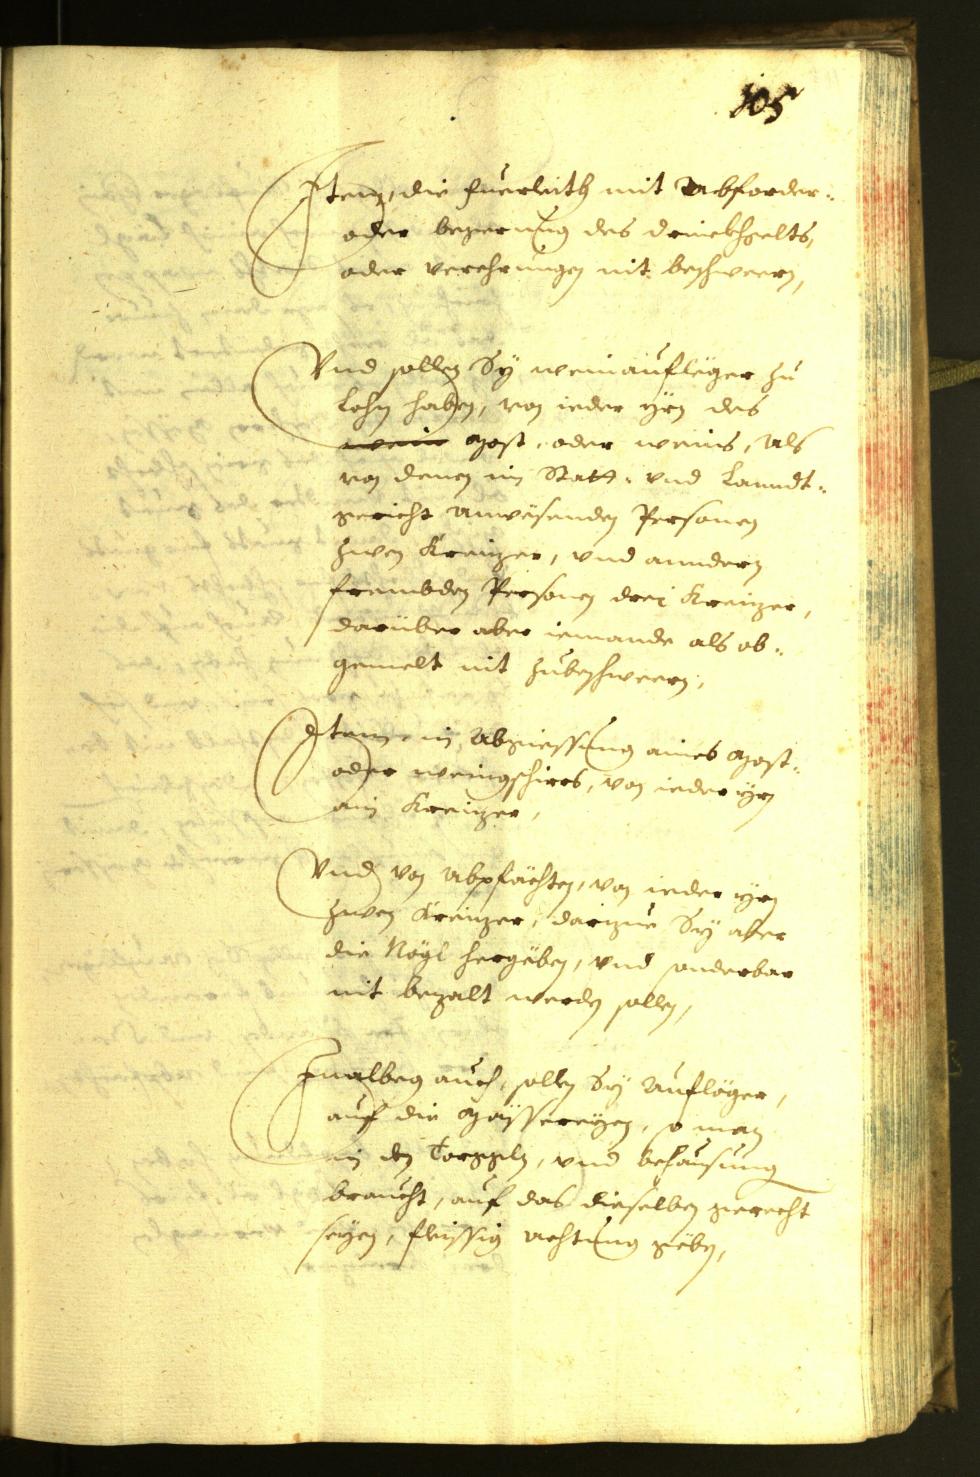 105
Item, die fuerleith mit Abforder-
oder begerung des drinckhgelts,
oder verehrungen nit beschweern,
Vnd sollen Sy weinaufleger zu
Lohn haben, von ieder yrn des
wein Most, oder weins, Als
von denen in Statt- vnd Lanndt-
gericht Anwesenden Personen
zwen Kreuzer, vnd anndern
frembden Personen drei Kreizer,
darüber aber iemande als ob-
gemelt nit zubeschweern,
Item in Abgiessung aines Most-
oder weingschirrs, von ieder yrn
ain Kreizer,
Vnd von Abpfächten, von ieder yrn
zwen Kreizer, darzue Sy aber
die Nögl hergeben, vnd sonderbar
nit bezalt werden sollen,
auch, sollen Sy Aufleger,
auf die Mässereyen, so man
in den Torggln, vnd behausung
braucht, auf das dieselben gerecht
seyen, fleissig Achtung geben,